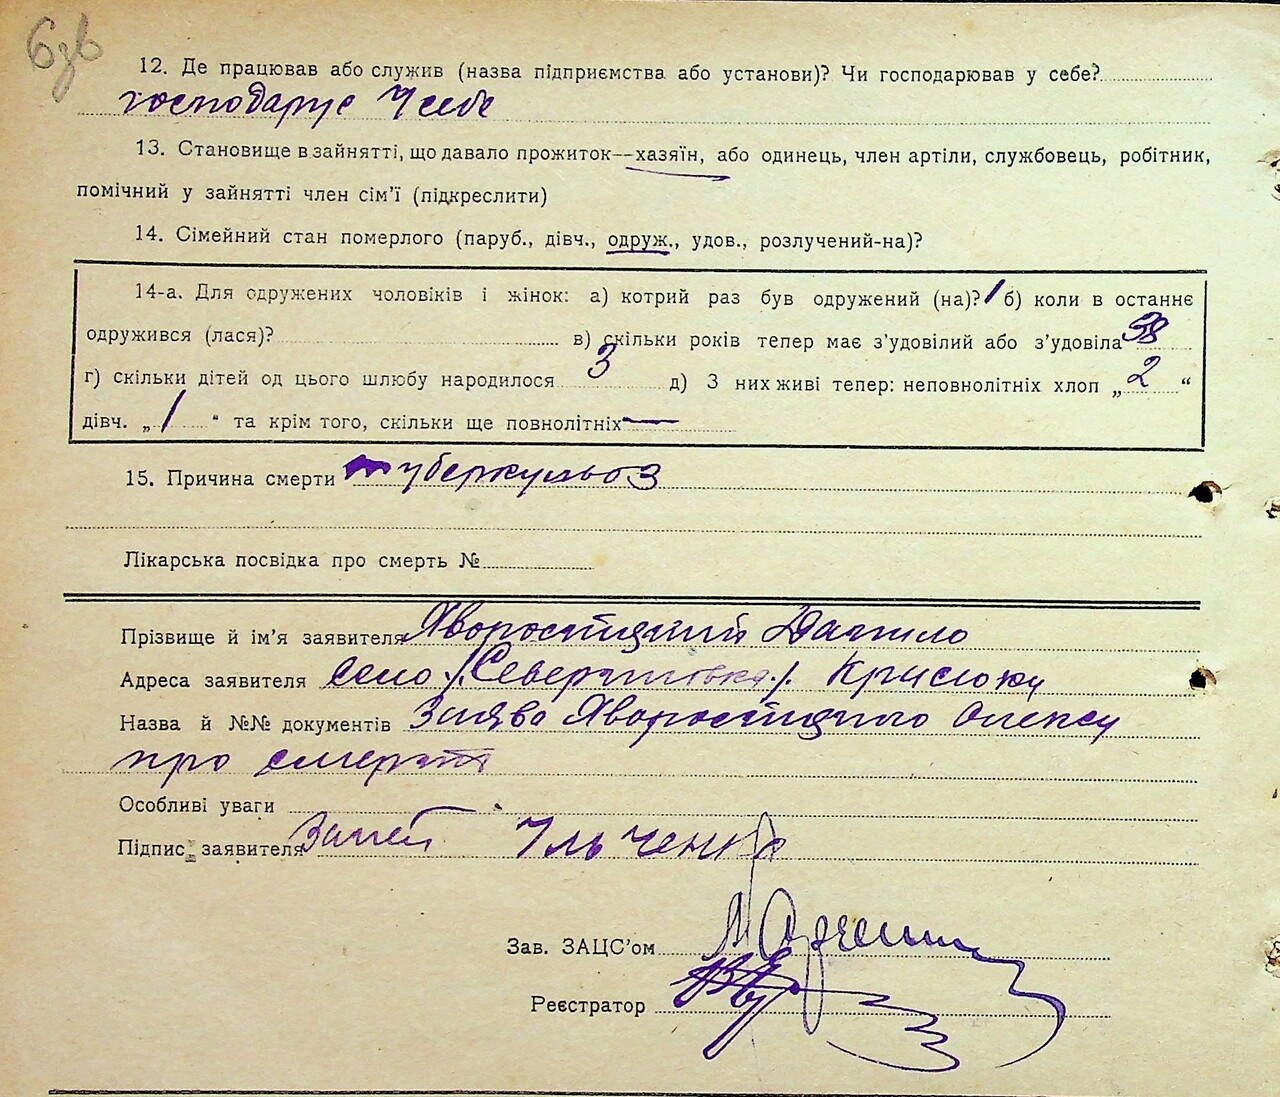 6зв
12. Де працював або служив (назва підприємства або установи)? Чи господарював у себе?
господарує У себе
13. Становище в зайнятті, що давало прожиток—хазяїн, або одинець, член артіли, службовець, робітник,
помічний у зайнятті член сім'ї (підкреслити)
14. Сімейний стан померлого (паруб., дівч., одруж., удов., розлучений-на)?
14-а. Для одружених чоловіків і жінок: а) котрий раз був одружений (на)? 1 б) коли в останнє
одружився (лася)? в) скільки років тепер має з'удовілий або з'удовіла 38
г) скільки дітей од цього шлюбу народилося 3 д) З них живі тепер: неповнолітніх хлоп „ 2 “
дівч. „ 1 “ та крім того, скільки ще повнолітніх —
15. Причина смерти туберкульоз
Лікарська посвідка про смерть №
Прізвище й ім'я заявителя Яворостицкий Данило
Адреса заявителя село /Северинівка/
Назва й №№ документів Заява Яворостицкого Олекси
про смерть
Особливі уваги
Підпис заявителя Ильченко
Зав. ЗАЦС'ом
Реєстратор